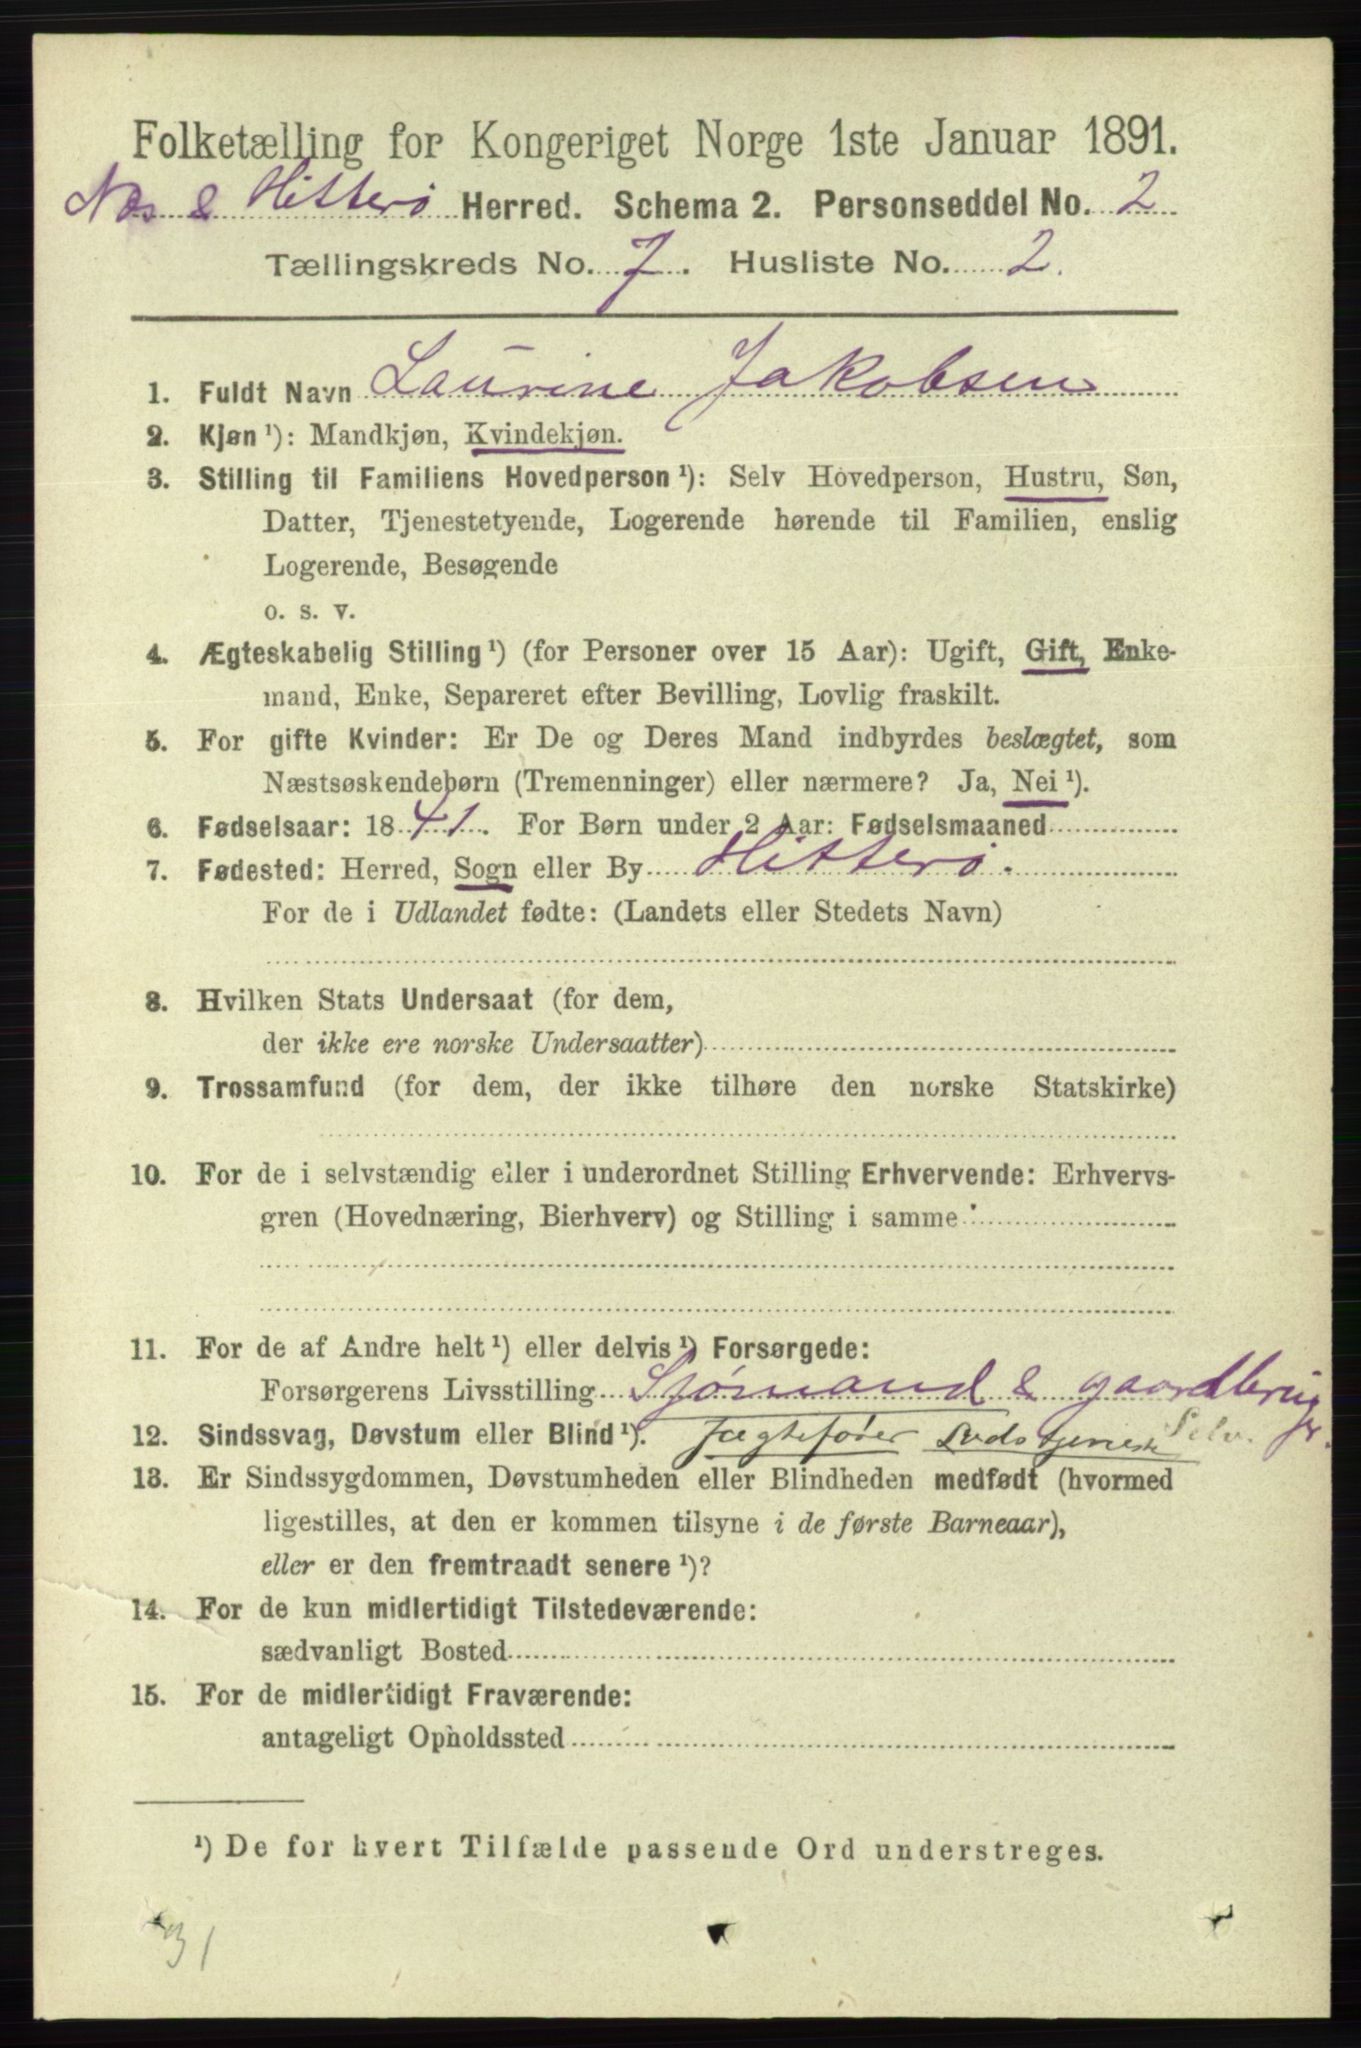 Folketælling for Kongeriget Norge 1ste Januar 1891.
Næs & Hitterø Herred. Schema 2. Personseddel No. 2
Tællingskreds No. 7. Husliste No. 2.
1. Fuldt Navn Laurine Jakobsen
2. Kjøn ¹): Mandkjøn, Kvindekjøn.
3. Stilling til Familiens Hovedperson ¹): Selv Hovedperson, Hustru, Søn,
Datter, Tjenestetyende, Logerende hørende til Familien, enslig
Logerende, Besøgende
o. s. v.
4. Ægteskabelig Stilling ¹) (for Personer over 15 Aar): Ugift, Gift, Enke-
mand, Enke, Separeret efter Bevilling, Lovlig fraskilt.
5. For gifte Kvinder: Er De og Deres Mand indbyrdes beslægtet, som
Næstsøskendebørn (Tremenninger) eller nærmere? Ja, Nei ¹).
6. Fødselsaar: 1841. For Børn under 2 Aar: Fødselsmaaned
7. Fødested: Herred, Sogn eller By Hitterø.
For de i Udlandet fødte: (Landets eller Stedets Navn)
8. Hvilken Stats Undersaat (for dem,
der ikke ere norske Undersaatter)
9. Trossamfund (for dem, der ikke tilhøre den norske Statskirke)
10. For de i selvstændig eller i underordnet Stilling Erhvervende: Erhvervs-
gren (Hovednæring, Bierhverv) og Stilling i samme
11. For de af Andre helt ¹) eller delvis ¹) Forsørgede:
Forsørgerens Livsstilling Sjømand & gaardbruger.
12. Sindssvag, Døvstum eller Blind ¹). Jægtefører Selv.
13. Er Sindssygdommen, Døvstumheden eller Blindheden medfødt (hvormed
ligestilles, at den er kommen tilsyne i de første Barneaar),
eller er den fremtraadt senere ¹)?
14. For de kun midlertidigt Tilstedeværende:
sædvanligt Bosted
15. For de midlertidigt Fraværende:
antageligt Opholdssted
¹) De for hvert Tilfælde passende Ord understreges.
31